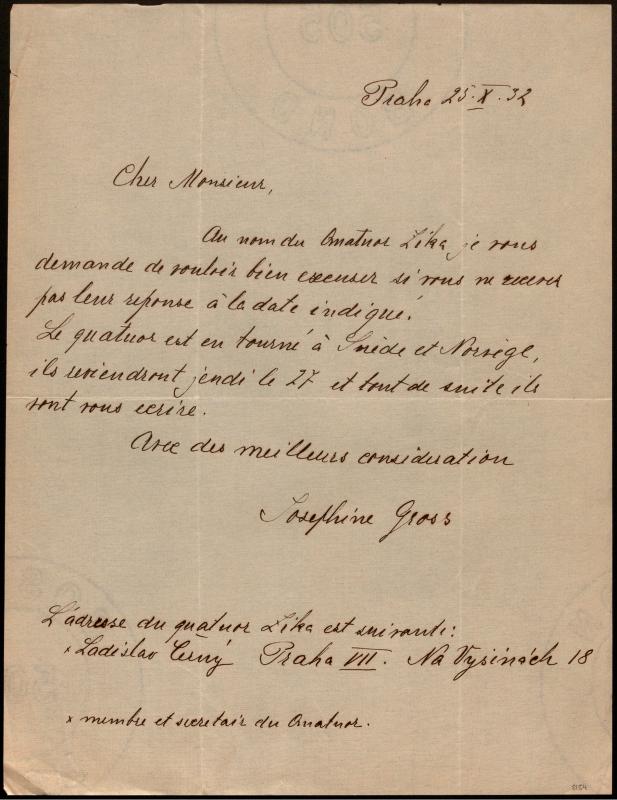 Praha 25.X.32
Cher Monsieur,
Au nom du Quatuor Zika je vous
demande de vouloir bien excuser si vous ne recever
pas leur reponse à la date indiqué.
Le quatuor est en tourné à Suède et Norvège,
ils reviendront jeudi le 27 et tout de suite ils
vont vous ecrire.
Avec des meilleurs consideration
Josephine Gross
L'adresse du quatuor Zika est suivante:
x Ladislav Černý Praha VII. Na Vyšinách 18
x membre et secretair du Quatuor.